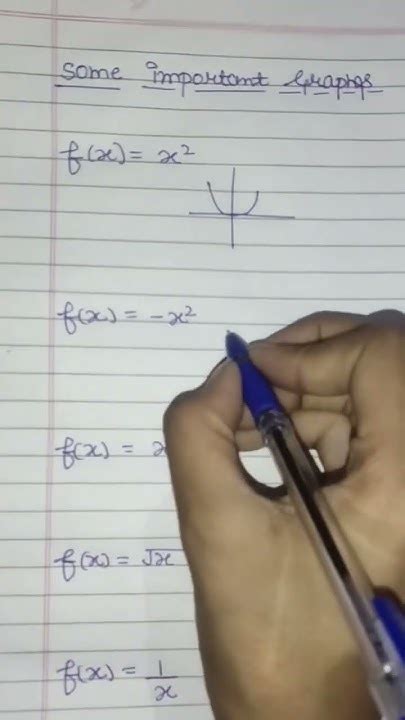 Some Important Graphqs
f(x) = x²
f(x) = -x²
f(x) =
f(x) = √x
f(x) = 1/x